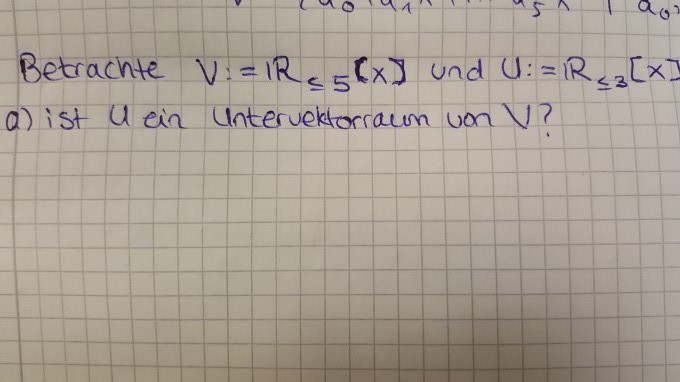 Betrachte V:=ℝ≤5[x] und U:=ℝ≤3[x]
a) ist U ein Untervektorraum von V?